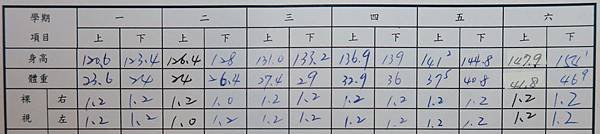 學期 一 二 三 四 五 六
項目 上 下 上 下 上 下 上 下 上 下 上 下
身高 120.6 123.4 126.4 128 131.0 133.2 136.9 139 141² 144.8 147.9 151¹
體重 23.6 24 24 26.4 27.4 29 32.9 36 37⁵ 40.8 41.8 46⁹
裸視 右 1.2 1.2 1.2 1.0 1.2 1.2 1.2 1.2 1.2 1.2 1.2 1.2
左 1.2 1.2 1.0 1.2 1.2 1.2 1.2 1.2 1.2 1.2 1.2 1.2